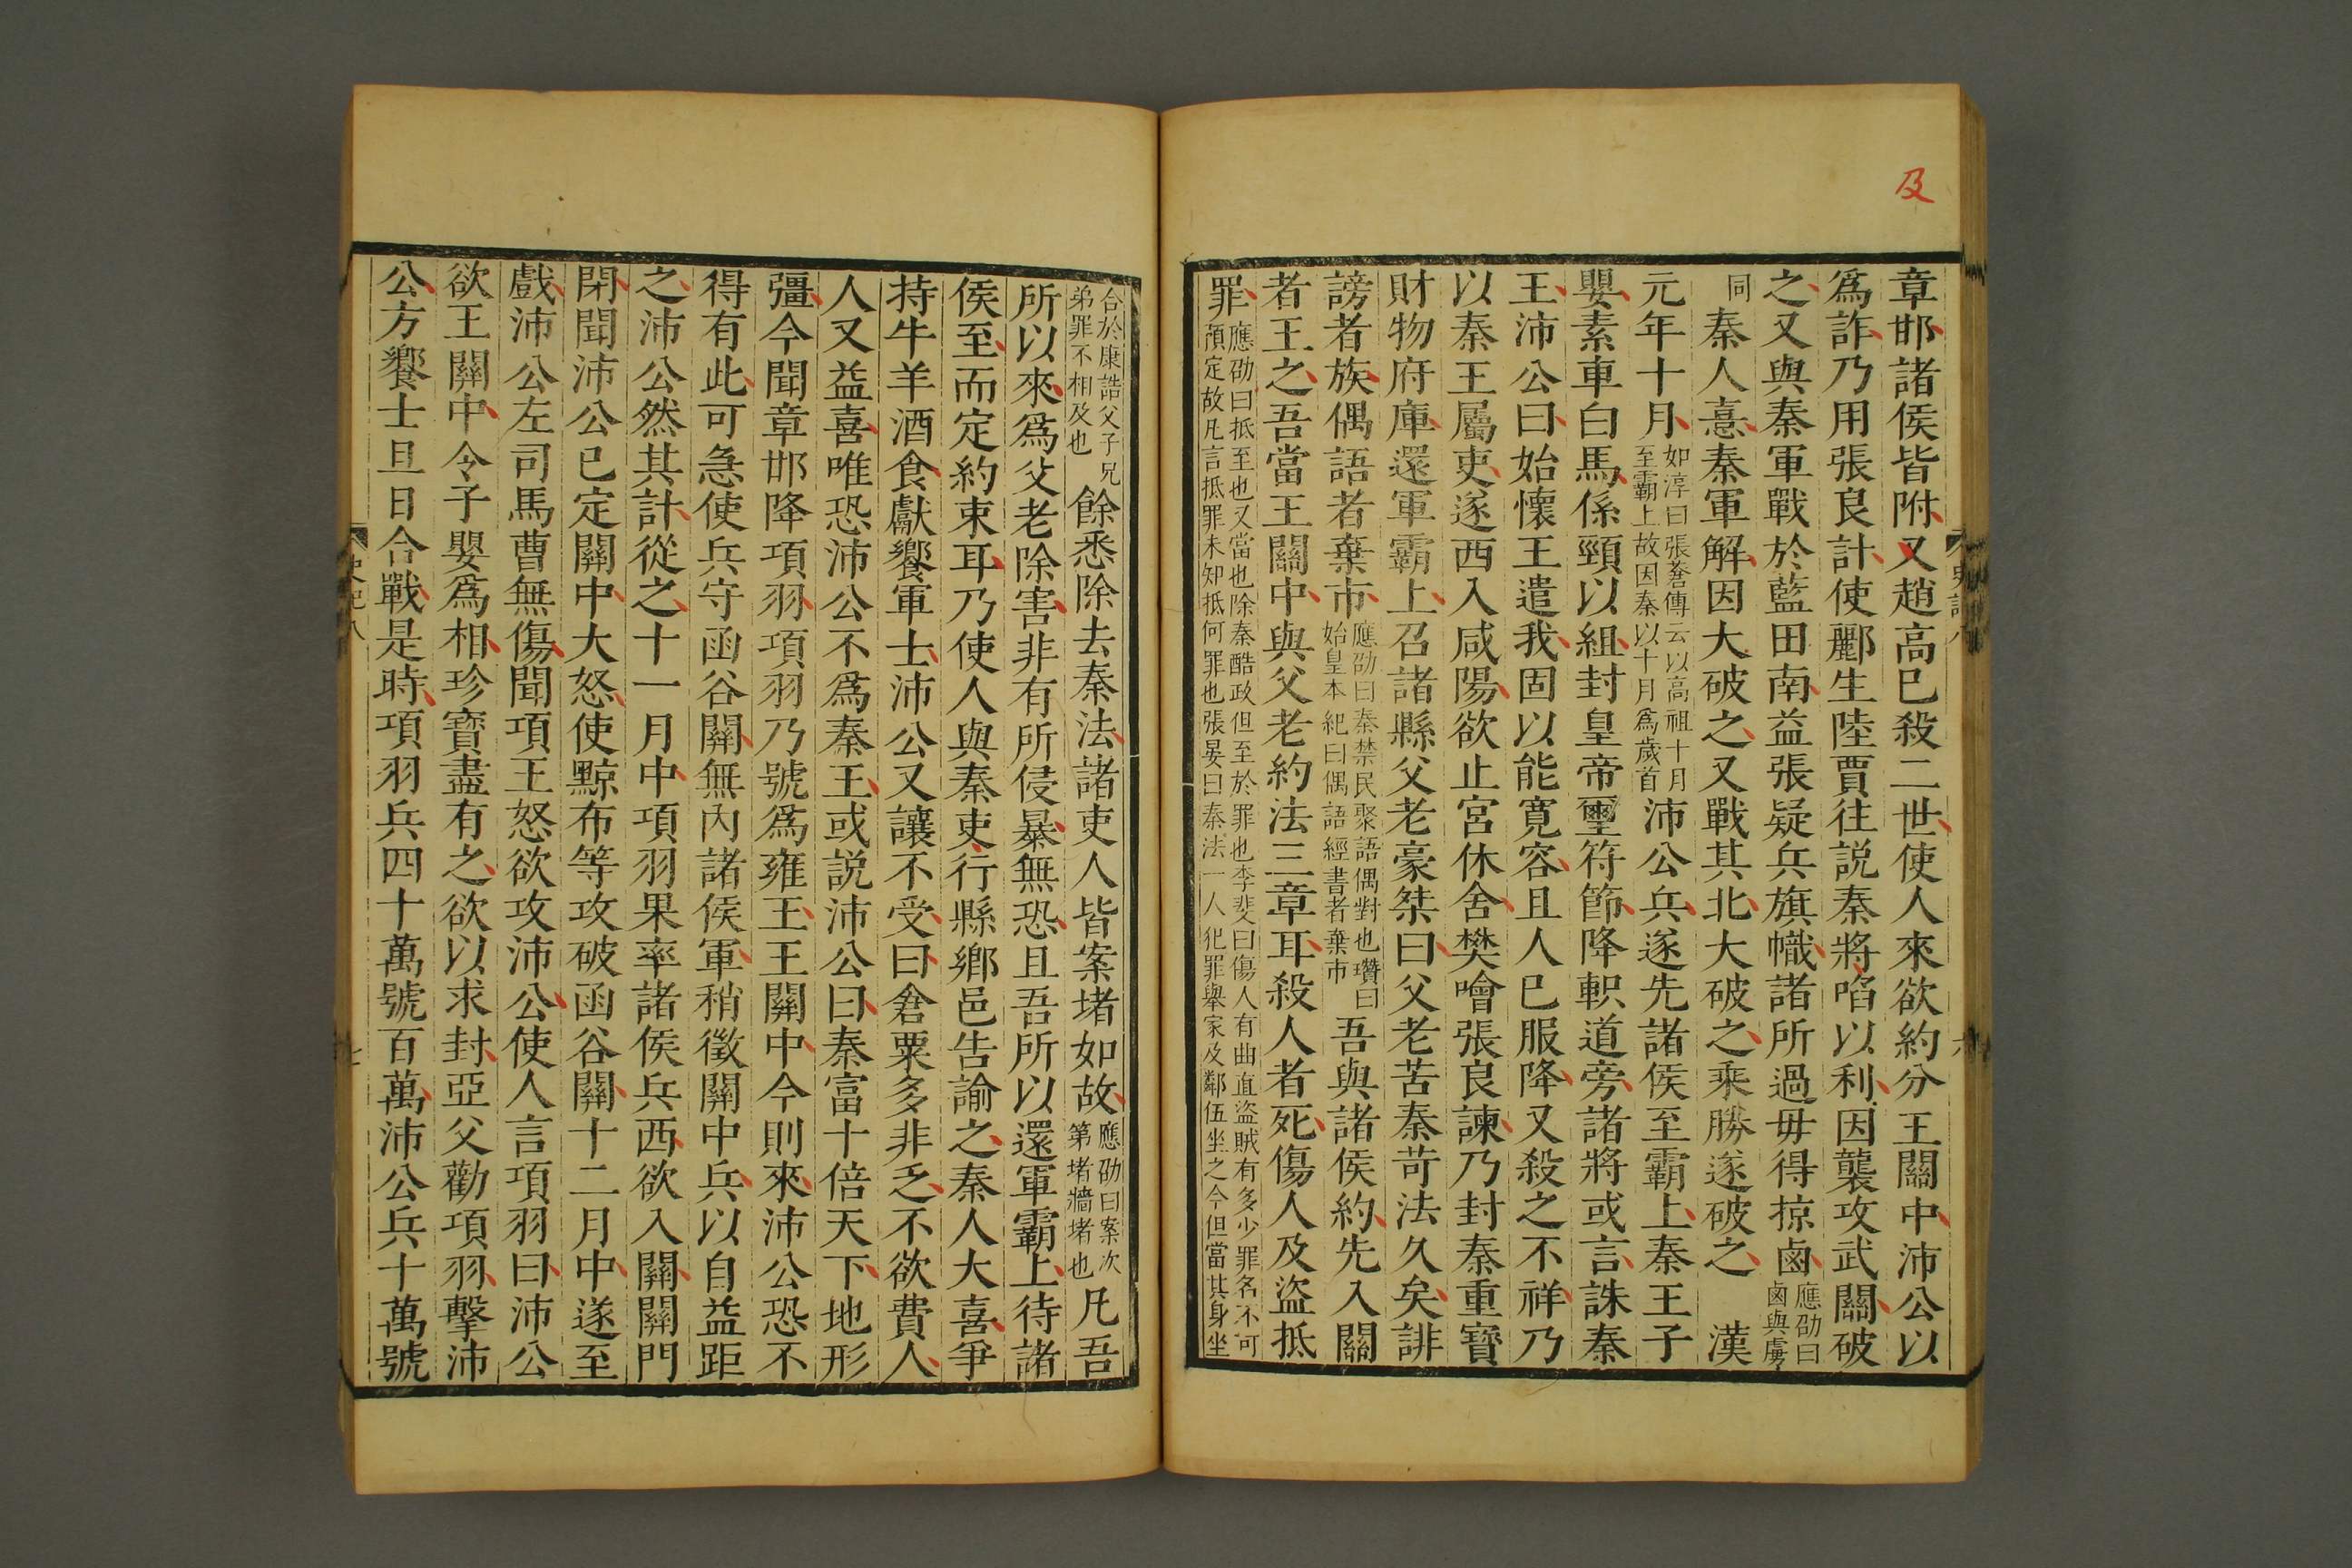 及
章邯諸侯皆附又趙高已殺二世使人來欲約分王關中沛公以
爲詐乃用張良計使酈生陸賈往説秦將啗以利因襲攻武關破
之又與秦軍戰於藍田南益張疑兵旗幟諸所過毋得掠鹵應劭曰鹵與虜
同秦人憙秦軍解因大破之又戰其北大破之乘勝遂破之 漢
元年十月如淳曰張蒼傳云以高祖十月至霸上故因秦以十月爲歲首沛公兵遂先諸侯至霸上秦王子
嬰素車白馬係頸以組封皇帝璽符節降軹道旁諸將或言誅秦
王沛公曰始懷王遣我固以能寬容且人已服降又殺之不祥乃
以秦王屬吏遂西入咸陽欲止宮休舍樊噲張良諫乃封秦重寶
財物府庫還軍霸上召諸縣父老豪桀曰父老苦秦苛法久矣誹
謗者族偶語者棄市應劭曰秦禁民聚語偶對也瓚曰始皇本紀曰偶語經書者棄市吾與諸侯約先入關
者王之吾當王關中與父老約法三章耳殺人者死傷人及盜抵
罪應劭曰抵至也又當也除秦酷政但至於罪也李斐曰傷人有曲直盜賊有多少罪名不可預定故凡言抵罪未知抵何罪也張晏曰秦法一人犯罪舉家及鄰伍坐之今但當其身坐
合於康誥父子兄弟罪不相及也餘悉除去秦法諸吏人皆案堵如故應劭曰案次第堵牆堵也凡吾
所以來爲父老除害非有所侵暴無恐且吾所以還軍霸上待諸
侯至而定約束耳乃使人與秦吏行縣鄉邑告諭之秦人大喜爭
持牛羊酒食獻饗軍士沛公又讓不受曰倉粟多非乏不欲費人
人又益喜唯恐沛公不爲秦王或説沛公曰秦富十倍天下地形
彊今聞章邯降項羽項羽乃號爲雍王王關中今則來沛公恐不
得有此可急使兵守函谷關無內諸侯軍稍徵關中兵以自益距
之沛公然其計從之十一月中項羽果率諸侯兵西欲入關關門
閉聞沛公已定關中大怒使黥布等攻破函谷關十二月中遂至
戲沛公左司馬曹無傷聞項王怒欲攻沛公使人言項羽曰沛公
欲王關中令子嬰爲相珍寶盡有之欲以求封亞父勸項羽擊沛
公方饗士旦日合戰是時項羽兵四十萬號百萬沛公兵十萬號